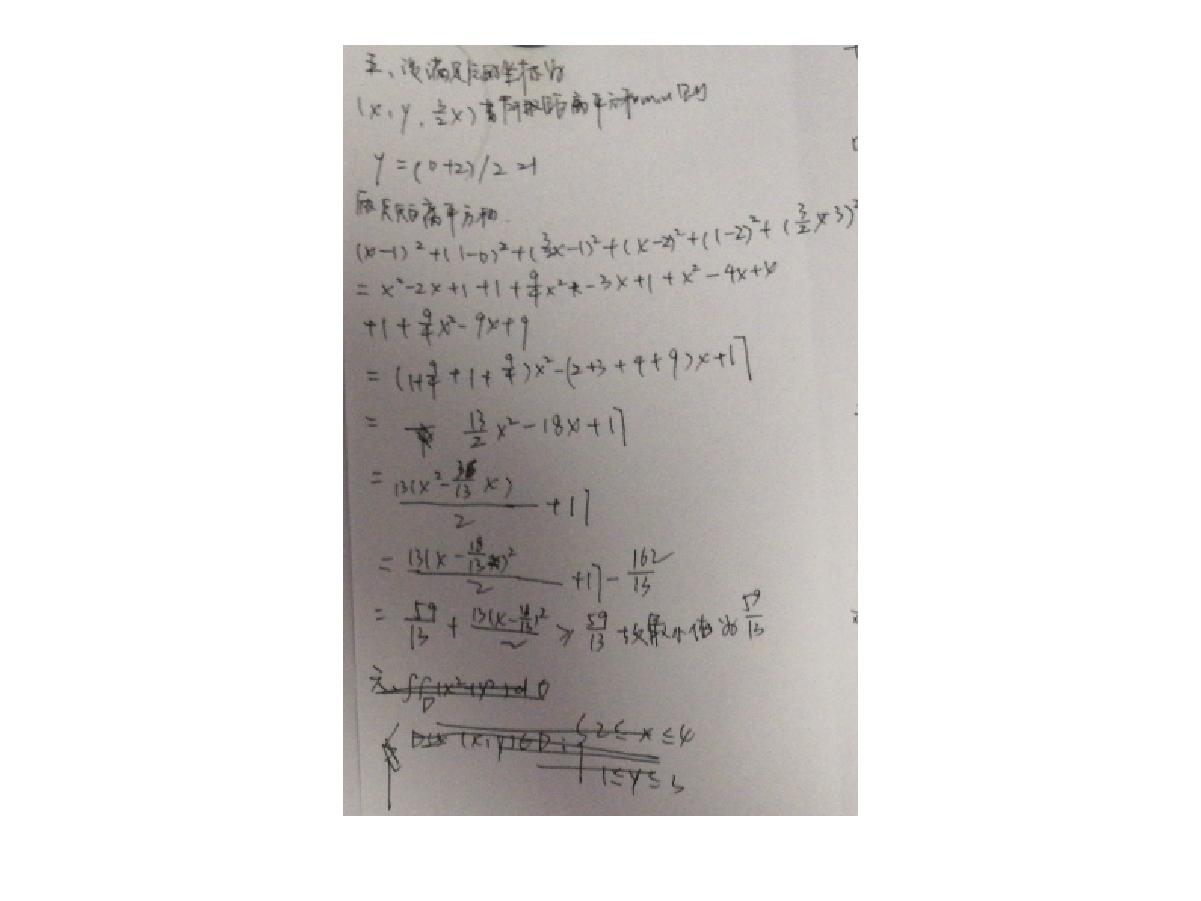 五、设满足后的坐标为
(x, y, 3/2x) 离 距离平方和min 即
y = (0+2)/2 =1
距离平方和
(x-1)² + (1-0)² + (3/2x-1)² + (x-2)² + (1-2)² + (3/2x-3)²
= x²-2x+1+1+9/4x²-3x+1+x²-4x+4
+1+9/4x²-9x+9
= (1+9/4+1+9/4)x²-(2+3+4+9)x+17
= 13/2 x²-18x+17
= 13(x²-36/13 x)/2 +17
= 13(x-18/13)²/2 +17-162/13
= 59/13 + 13(x-18/13)²/2 ≥ 59/13 故最小值为 59/13
六、∬D(x²+y²)dσ
(x,y)∈D: { 2≤x≤4
1≤y≤3